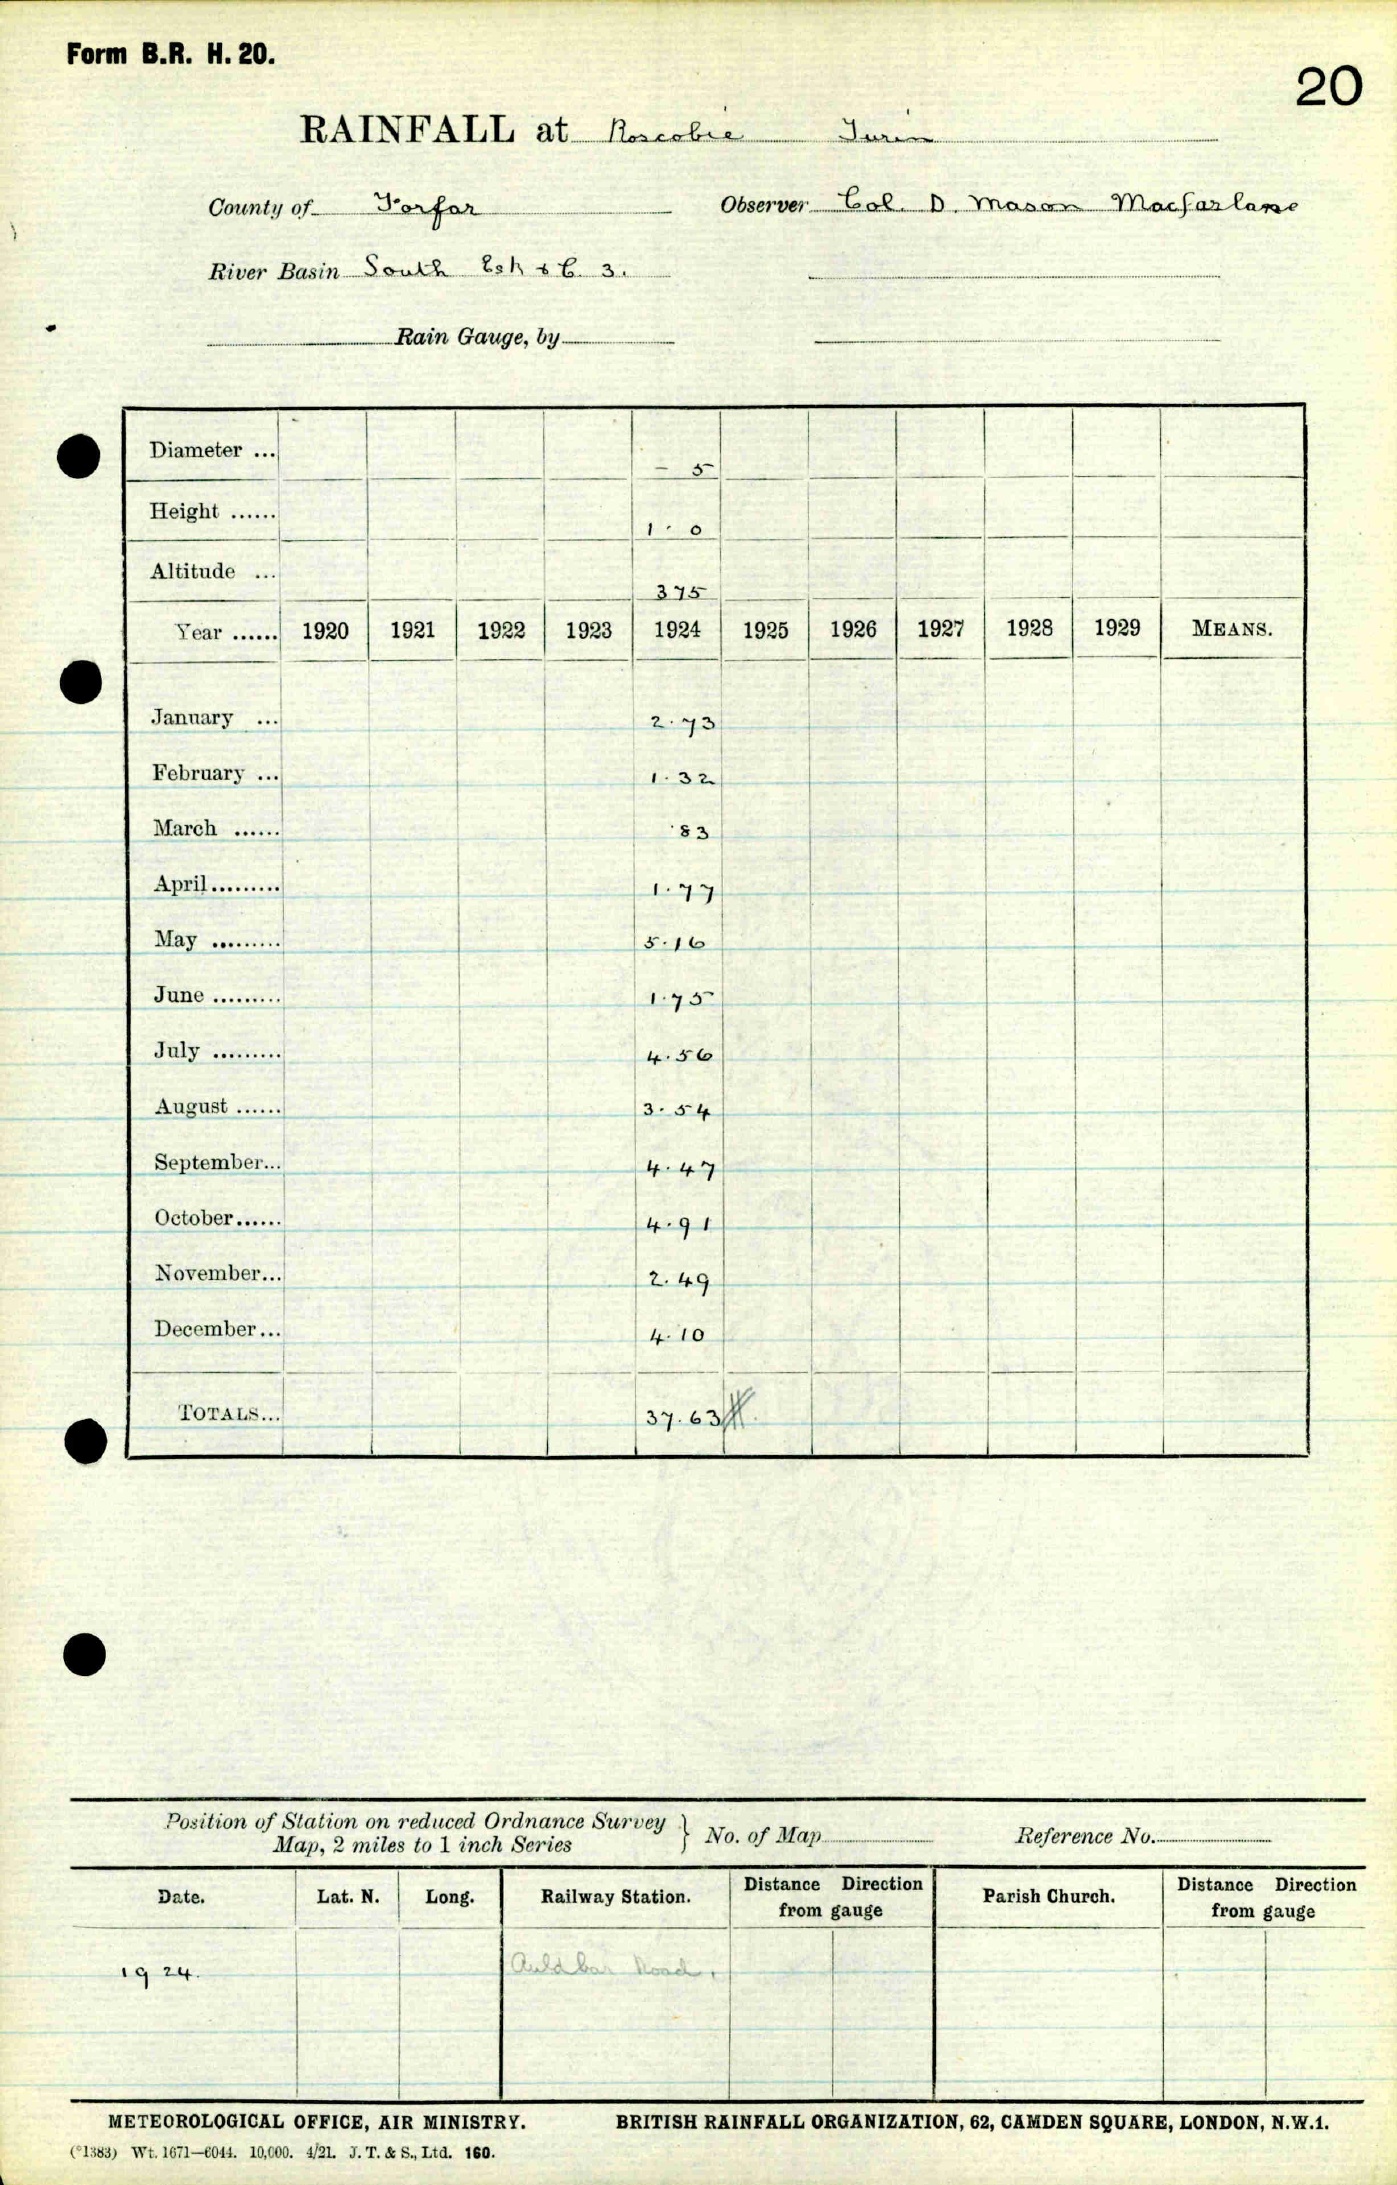 Form B.R. H. 20.
20
RAINFALL at Roscobie Turin
County of Forfar Observer Col. D. Mason Macfarlane
River Basin South Esk & C. 3.
Rain Gauge, by
Diameter ... – 5
Height ...... 1 · 0
Altitude ... 375
Year ...... 1920 1921 1922 1923 1924 1925 1926 1927 1928 1929 MEANS.
January ... 2.73
February ... 1.32
March ...... .83
April ......... 1.77
May ......... 5.16
June ......... 1.75
July ......... 4.56
August ...... 3.54
September... 4.47
October...... 4.91
November... 2.49
December... 4.10
TOTALS... 37.63
Position of Station on reduced Ordnance Survey
Map, 2 miles to 1 inch Series } No. of Map Reference No.
Date. Lat. N. Long. Railway Station. Distance Direction from gauge Parish Church. Distance Direction from gauge
1924. Auldbar Road.
METEOROLOGICAL OFFICE, AIR MINISTRY. BRITISH RAINFALL ORGANIZATION, 62, CAMDEN SQUARE, LONDON, N.W.1.
(°1383) Wt. 1671—6044. 10,000. 4/21. J. T. & S., Ltd. 160.